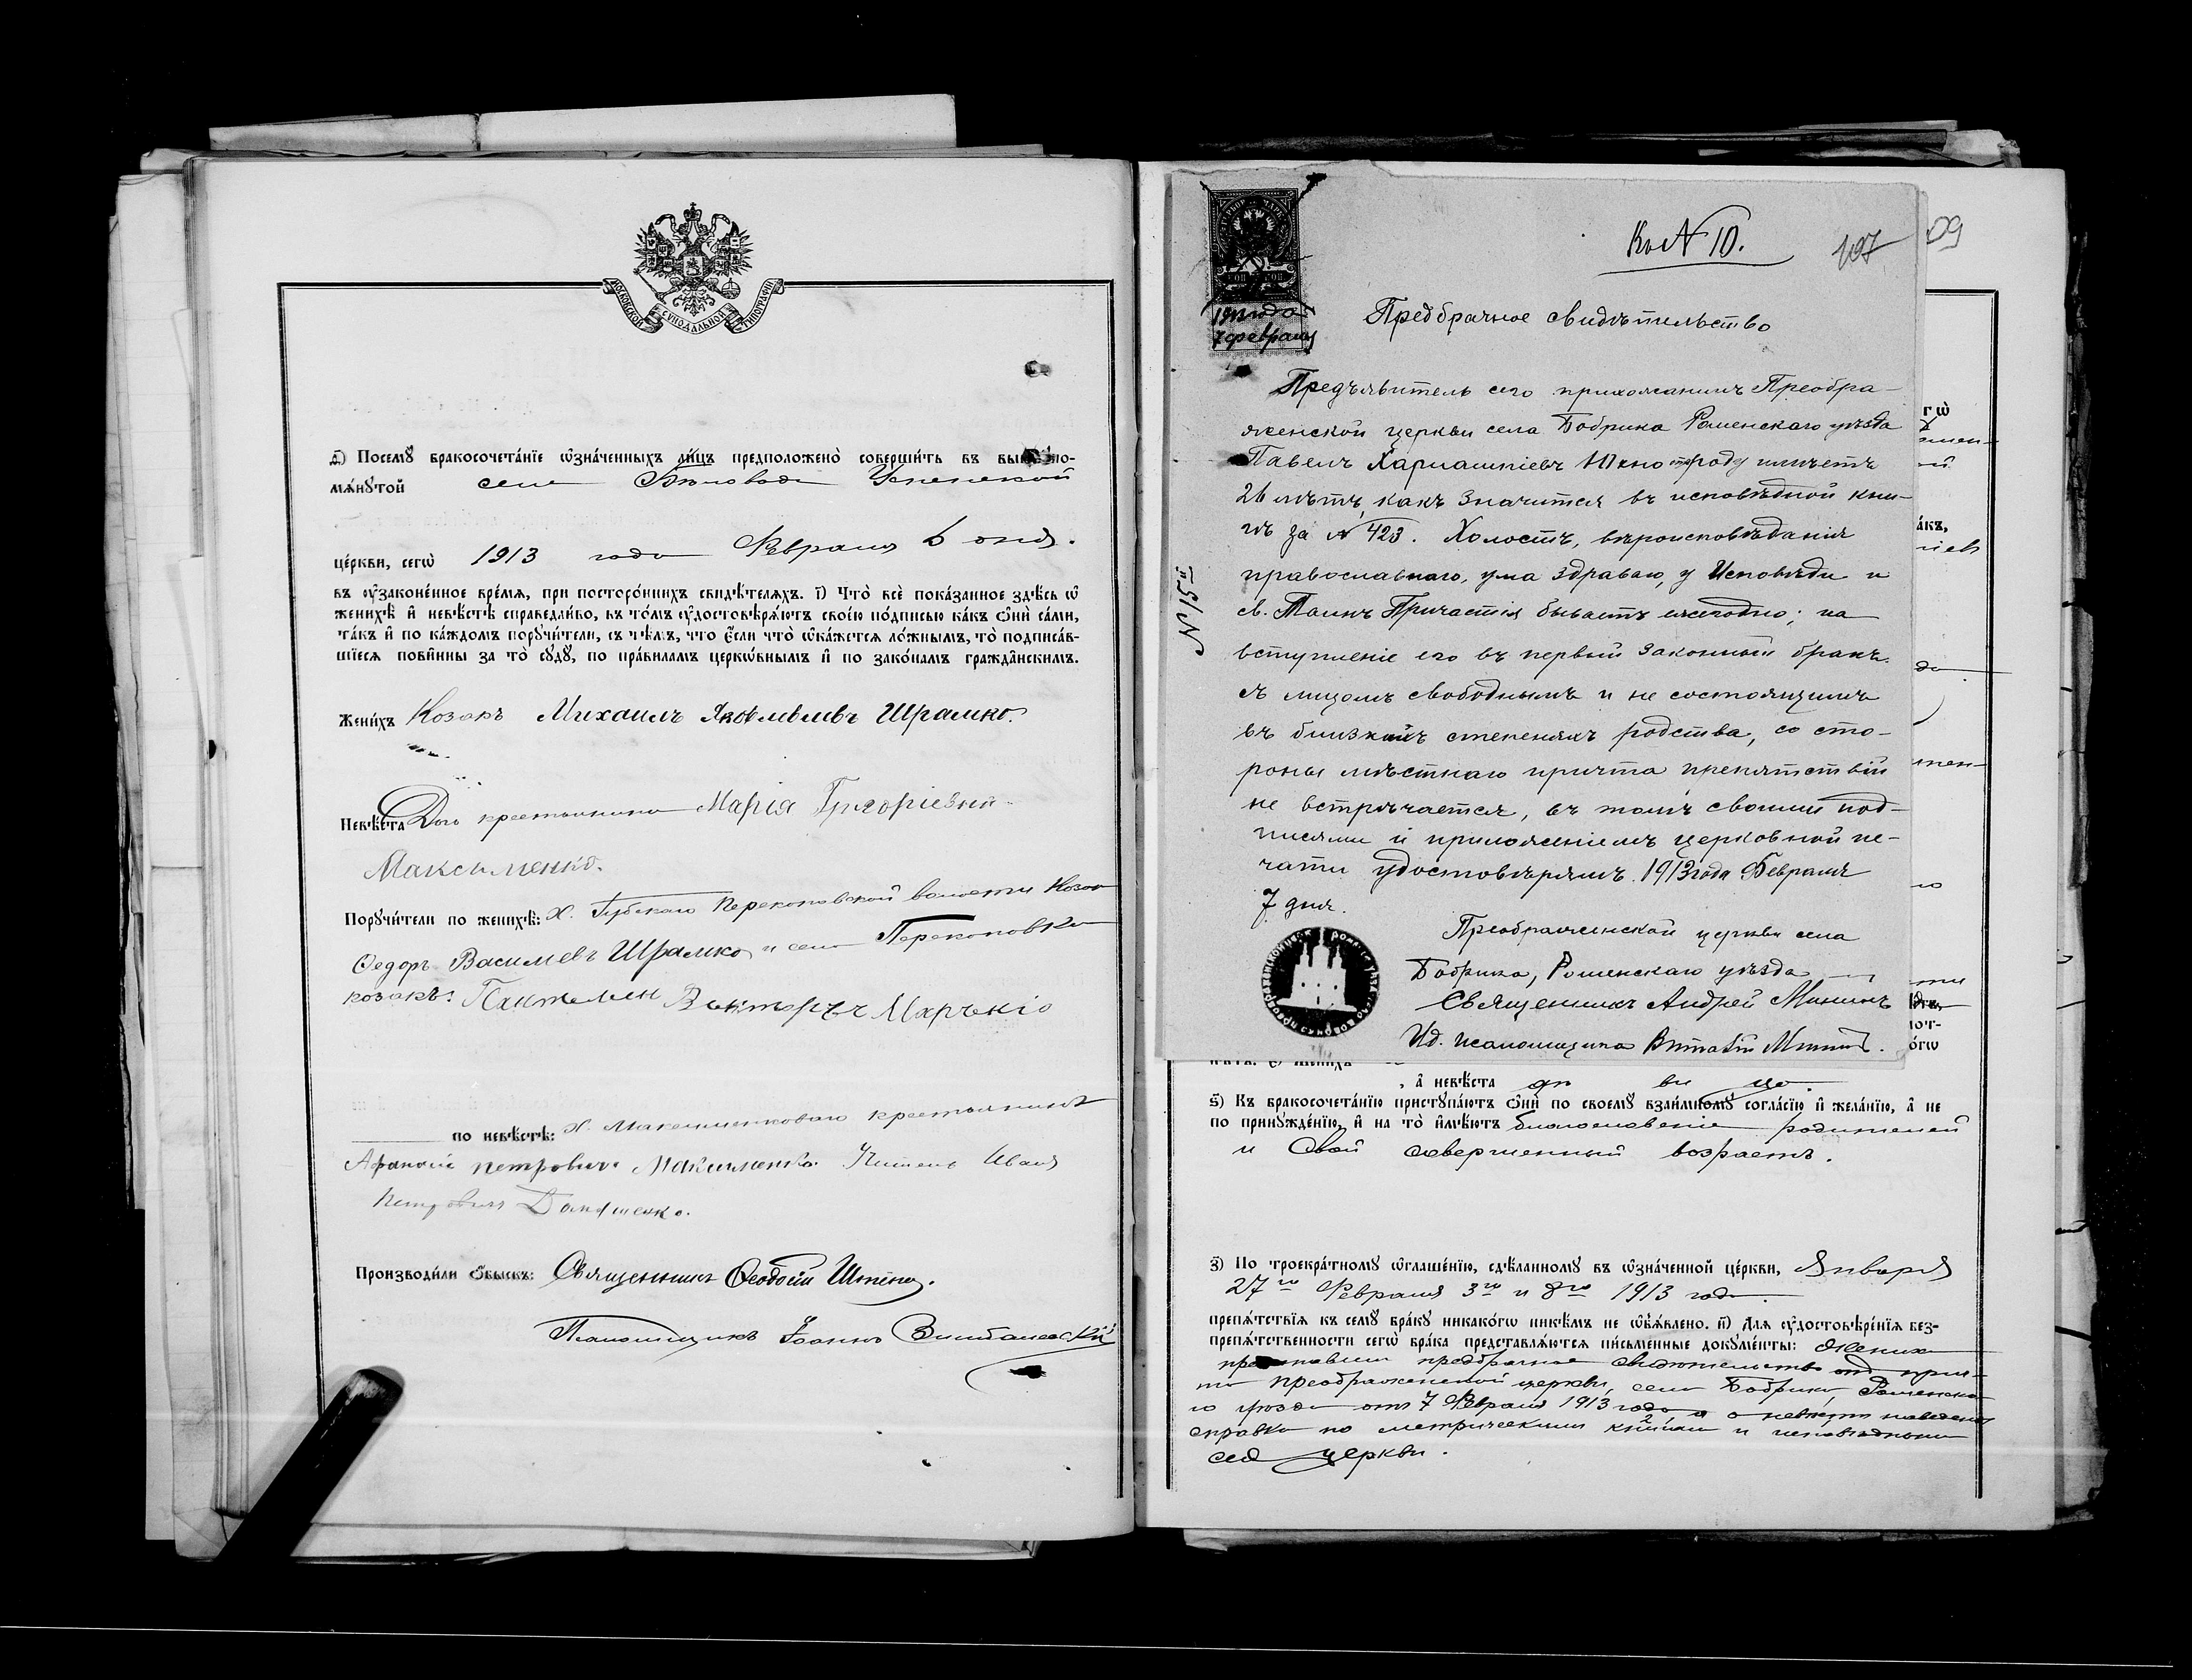 МОСКОВСКОЙ СѴНОДАЛЬНОЙ ТИПОГРАФІИ
д҃) Посемꙋ бракосочета́нїе ѡ҆зна́ченныхъ ли́цъ предположено̀ соверши́ть въ
мѧ́нꙋтой селе Бѣловодѣ Успенской
це́ркви, сегѡ̀ 1913 года Февраля 6 дня.
въ ᲂу҆зако́ненное вре́мѧ, при посторо́ннихъ свидѣ́телѧхъ. і҃) Что̀ всѐ пока́занное здѣ́сь ѡ҆
женихѣ̀ и҆ невѣ́стѣ справедли́во, въ то́мъ ᲂу҆достовѣрѧ́ютъ свое́ю по́дписью ка́къ ѻ҆нѝ са́ми,
та́къ и҆ по ка́ждомъ порꙋчи́тели, съ тѣ́мъ, что є҆́сли что̀ ѡ҆ка́жетсѧ ло́жнымъ, то̀ подписа́в-
шїесѧ пови́нны за то̀ сꙋдꙋ̀, по пра́виламъ церко́внымъ и҆ по зако́намъ гражда́нскимъ.
Жени́хъ Козакъ Михаилъ Яковлевичъ Шрамко.
Невѣ́ста Дочь крестьянина Марія Григоріевна
Максименко.
Порꙋчи́тели по женихѣ̀: х. Губскаго Перекоповской волости Козак
Ѳедоръ Васильевъ Шрамко и села Перекоповки
козакъ: Пантелей Викторовъ Марченко
по невѣ́стѣ: х. Максименковаго крестьянинъ
Афанасій Петровичъ Максименко. Иванъ
Петровичъ
Производи́ли ѻ҆́быскъ: Священникъ Ѳеодосій
Псаломщикъ Іоаннъ
Къ N 10.
107
09
1913 года
7 февраля
Предбрачное свидѣтельство
Предъявитель сего прихожанинъ Преобра-
женской церкви села Бобрика Роменскаго уѣзда
Павелъ Харлампіевъ отроду имѣетъ
26 лѣтъ, какъ значится въ исповѣдной кни-
гѣ за N 423. Холостъ, вѣроисповѣданія
православнаго, ума здраваго, у Исповѣди и
св. Таинъ Причастія бываетъ ежегодно; на
вступленіе его въ первый законный бракъ
съ лицомъ свободнымъ и не состоящимъ
въ близкихъ степеняхъ родства, со сто-
роны мѣстнаго причта препятствій
не встрѣчается, въ томъ своими под-
писями и приложеніемъ церковной пе-
чати удостовѣряемъ. 1913 года Февраля
7 дня.
Преображенской церкви села
Бобрика, Роменскаго уѣзда
Священникъ Андрей Мининъ
И.д. псаломщика Виталій
N 15
, а҆ невѣ́ста дѣ ви ца.
ѕ҃) Къ бракосочета́нїю пристꙋпа́ютъ ѻ҆нѝ по своемꙋ̀ взаи́мномꙋ согла́сїю и҆ жела́нїю, а҆ не
по принꙋжде́нїю, и҆ на то̀ и҆мѣ́ютъ благословеніе родителей
и свой совершенный возрастъ.
з҃) По троекра́тномꙋ ѡ҆глаше́нїю, сдѣ́ланномꙋ въ ѡ҆зна́ченной це́ркви, Января
27го Февраля 3го и 8го 1913 года.
препѧ́тствїѧ къ семꙋ̀ бра́кꙋ никако́гѡ никѣ́мъ не ѡ҆б̾ѧ́влено. и҃) Длѧ ᲂу҆достовѣре́нїѧ без-
препѧ́тственности сегѡ̀ бра́ка представлѧ́ютсѧ пи́сьменные докꙋме́нты: Жених
предбрачное свидѣтельство от прич-
та Преображенской церкви, села Бобрика, Роменска-
го уѣзда отъ 7 Февраля 1913 года, а о невѣстѣ наведена
справка по метрическимъ книгам и исповѣдным
сей церкви.